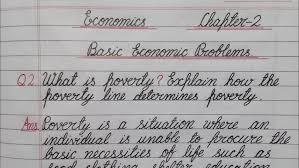 Economics Chapter-2
Basic Economic Problems
Q2 What is poverty? Explain how the
poverty line determines poverty.
Ans Poverty is a situation where an
individual is unable to procure the
basic necessities of life such as